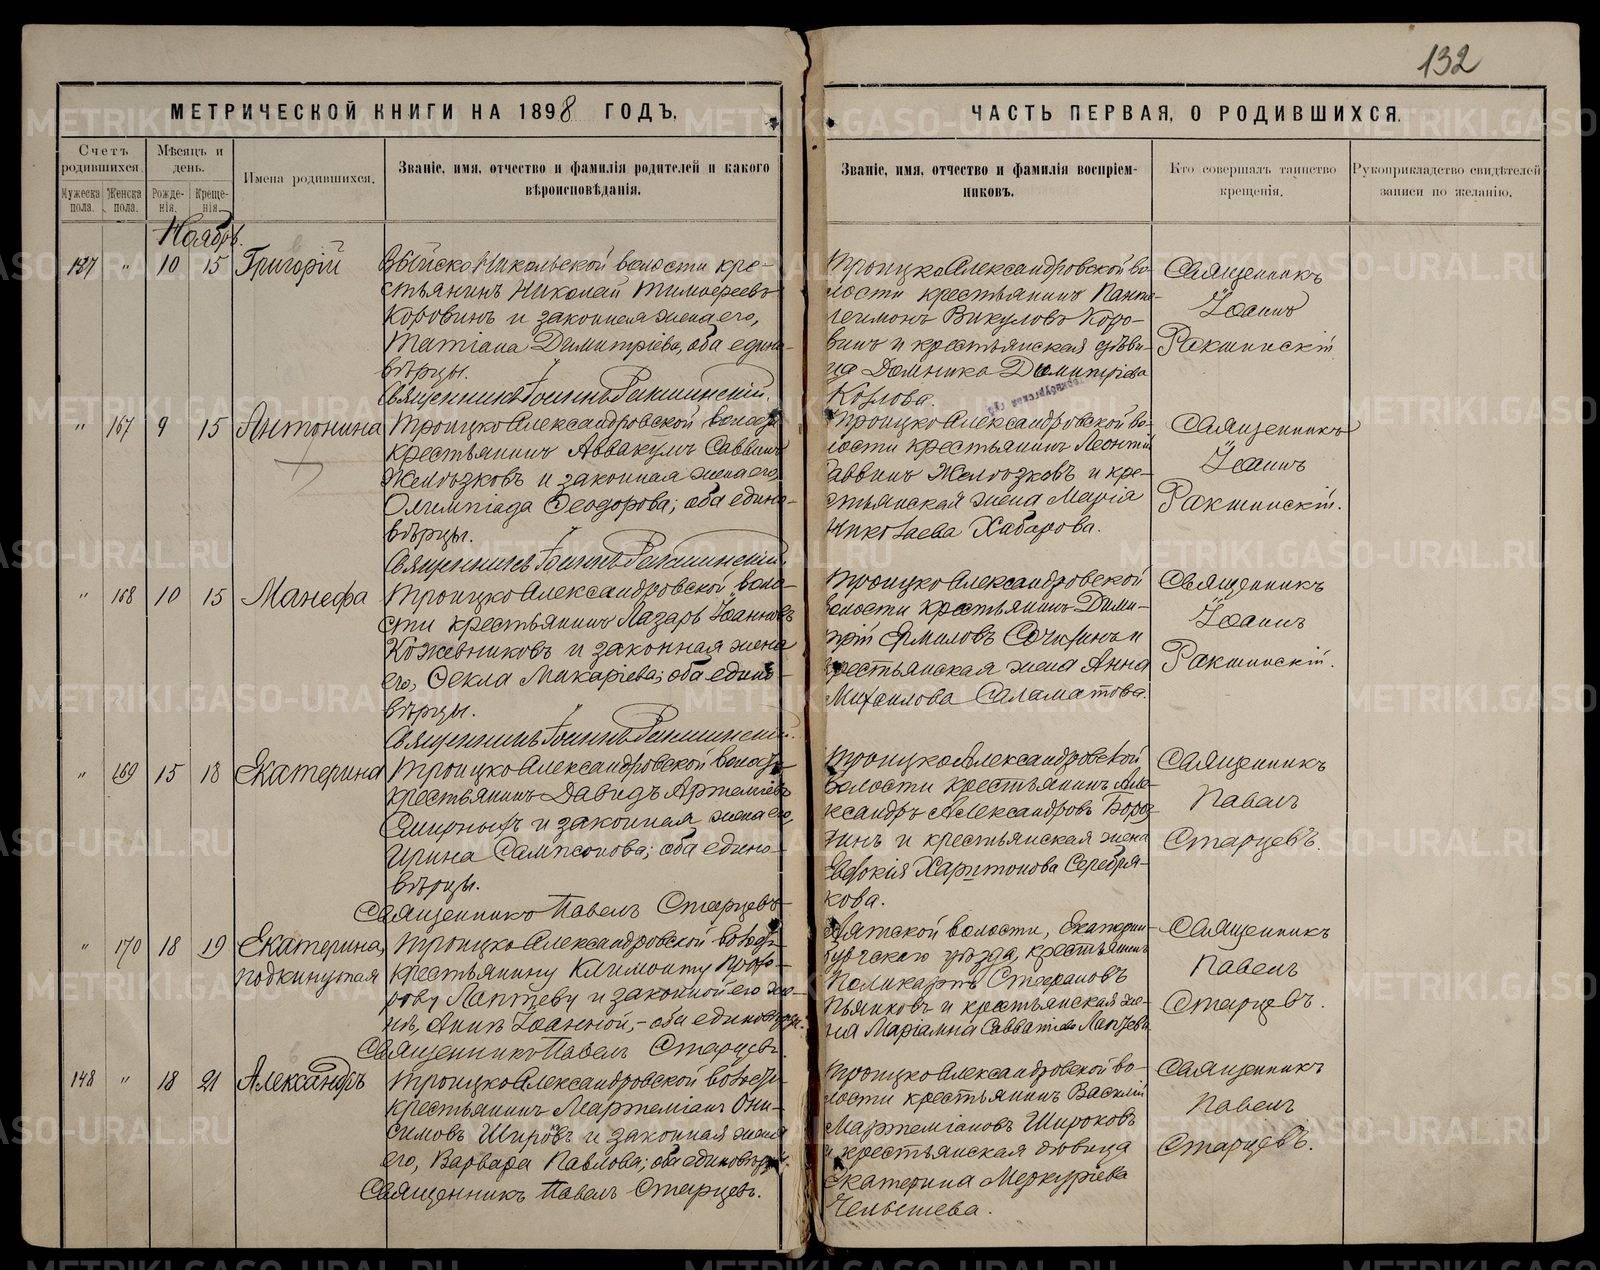 132
МЕТРИЧЕСКОЙ КНИГИ НА 1898 ГОДЪ,
ЧАСТЬ ПЕРВАЯ, О РОДИВШИХСЯ.
Счетъ родившихся.
Мужеска пола.
Женска пола.
Мѣсяцъ и день.
Рожде-нія.
Креще-нія.
Имена родившихся.
Званіе, имя, отчество и фамилія родителей и какого
вѣроисповѣданія.
Званіе, имя, отчество и фамилія воспріем-
никовъ.
Кто совершалъ таинство
крещенія.
Рукоприкладство свидѣтелей
записи по желанію.
Ноябрь.
" 10 15 Григорій
Выйско Никольской волости кре-
стьянинъ Николай Тимофеевъ
Коровинъ и законная жена его,
Татіана Димитріева, оба едино-
вѣрцы.
Священникъ Іоаннъ Ракшинскій.
Троицко Александровской во-
лости крестьянинъ Панте-
леимонъ Викуловъ Коро-
винъ и крестьянская дѣви-
ца Домника Димитріева
Козлова.
Священникъ
Іоаннъ
Ракшинскій
" 167 9 15 Антонина
Троицко Александровской волости
крестьянинъ Аввакумъ Саввинъ
Желѣзковъ и законная жена его
Олимпіада Ѳеодорова; оба едино-
вѣрцы.
Священникъ Іоаннъ Ракшинскій.
Троицко Александровской во-
лости крестьянинъ Леонтій
Саввинъ Желѣзковъ и кре-
стьянская жена Марія
Николаева Хабарова.
Священникъ
Іоаннъ
Ракшинскій.
" 168 10 15 Манефа
Троицко Александровской воло-
сти крестьянинъ Лазарь Іоанновъ
Кожевниковъ и законная жена
его, Ѳекла Макаріева; оба едино-
вѣрцы.
Священникъ Іоаннъ Ракшинскій.
Троицко Александровской
волости крестьянинъ Дими-
трій Ермиловъ и
крестьянская жена Анна
Михаилова Саламатова.
Священникъ
Іоаннъ
Ракшинскій.
" 169 15 18 Екатерина
Троицко Александровской волости
крестьянинъ Давидъ Артеміевъ
Смирныхъ и законная жена его,
Ирина Сампсонова; оба едино-
вѣрцы.
Священникъ Павелъ Старцевъ
Троицко Александровской
волости крестьянинъ Але-
ксандръ Александровъ
и крестьянская жена
Евдокія Харитонова Серебря-
кова.
Священникъ
Павелъ
Старцевъ.
" 170 18 19 Екатерина,
подкинутая
Троицко Александровской волости
крестьянину Климонту Прохо-
рову Лаптеву и законной его же-
нѣ, Аннѣ Іоанной, - оба единовѣрцы.
Священникъ Павелъ Старцевъ.
волости, Екатерин-
бургскаго уѣзда, крестьянинъ
Поликарпъ Стефановъ
Пьянковъ и крестьянская же-
на Маріамна Савватіева Лаптева
Священникъ
Павелъ
Старцевъ.
148 " 18 21 Александръ
Троицко Александровской волости
крестьянинъ Мартеміанъ Они-
симовъ Широковъ и законная жена
его, Варвара Павлова; оба единовѣрцы.
Священникъ Павелъ Старцевъ.
Троицко Александровской во-
лости крестьянинъ Василій
Мартеміановъ Широковъ
и крестьянская дѣвица
Екатерина Меркуріева
Челышева.
Священникъ
Павелъ
Старцевъ.
METRIKI.GASO-URAL.RU